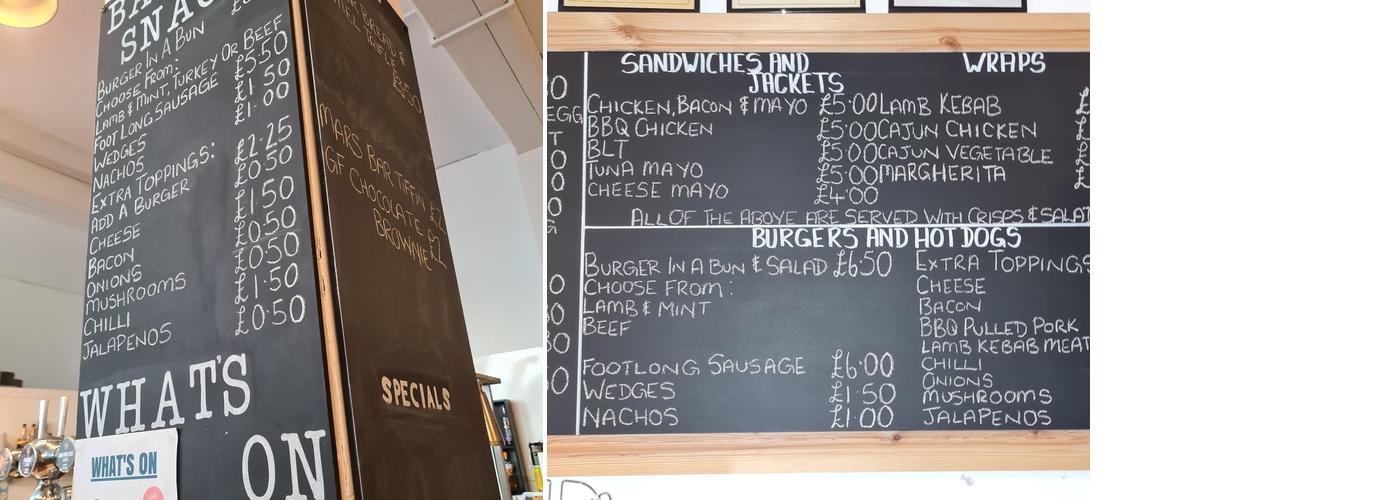 BURGER IN A BUN
CHOOSE FROM:
LAMB & MINT, TURKEY OR BEEF
FOOT LONG SAUSAGE £5·50
WEDGES £1·50
NACHOS £1·00
EXTRA TOPPINGS:
ADD A BURGER £2·25
CHEESE £0·50
BACON £1·50
ONIONS £0·50
MUSHROOMS £0·50
CHILLI £1·50
JALAPENOS £0·50
WHAT'S
ON
WHAT'S ON
MARS BAR TIFFIN £2
GF CHOCOLATE £2
BROWNIE
SPECIALS
EGG
SANDWICHES AND
JACKETS
CHICKEN, BACON & MAYO £5·00
BBQ CHICKEN £5·00
BLT £5·00
TUNA MAYO £5·00
CHEESE MAYO £4·00
WRAPS
LAMB KEBAB
CAJUN CHICKEN
CAJUN VEGETABLE
MARGHERITA
ALL OF THE ABOVE ARE SERVED WITH CRISPS & SALAT
BURGERS AND HOT DOGS
BURGER IN A BUN & SALAD £6·50
CHOOSE FROM:
LAMB & MINT
BEEF
FOOTLONG SAUSAGE £6·00
WEDGES £1·50
NACHOS £1·00
EXTRA TOPPINGS
CHEESE
BACON
BBQ PULLED PORK
LAMB KEBAB MEAT
CHILLI
ONIONS
MUSHROOMS
JALAPENOS